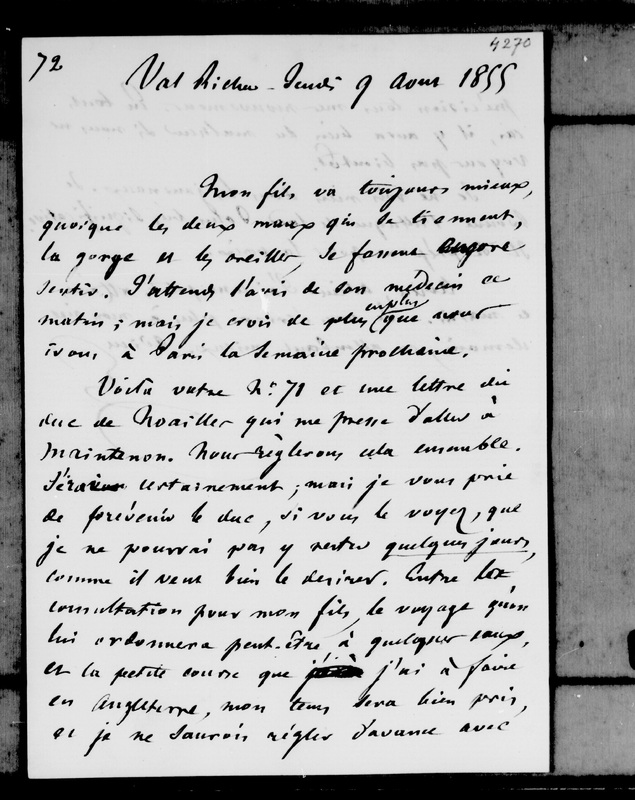 72
4270
Val Richer - Jeudi 9 Aout 1855
Mon fils va toujours mieux,
quoique les deux maux qui se tiennent,
la gorge et les oreilles, se fassent encore
sentir. J'attends l'avis de son médecin ce
matin ; mais je crois de plus en plus que nous
irons à Paris la semaine prochaine.
Voilà votre N° 71 et une lettre du
duc de Noailles qui me presse d'aller à
Maintenon. Nous règlerons cela ensemble.
J'irai certainement ; mais je vous prie
de prévenir le duc, si vous le voyez, que
je ne pourrai pas y rester quelques jours,
comme il veut bien le desirer. Entre la
consultation pour mon fils, le voyage qu'on
lui ordonnera peut-être à quelques eaux,
et la petite course que j'ai à faire
en Angleterre, mon tems sera bien pris,
et je ne saurois régler d'avance avec